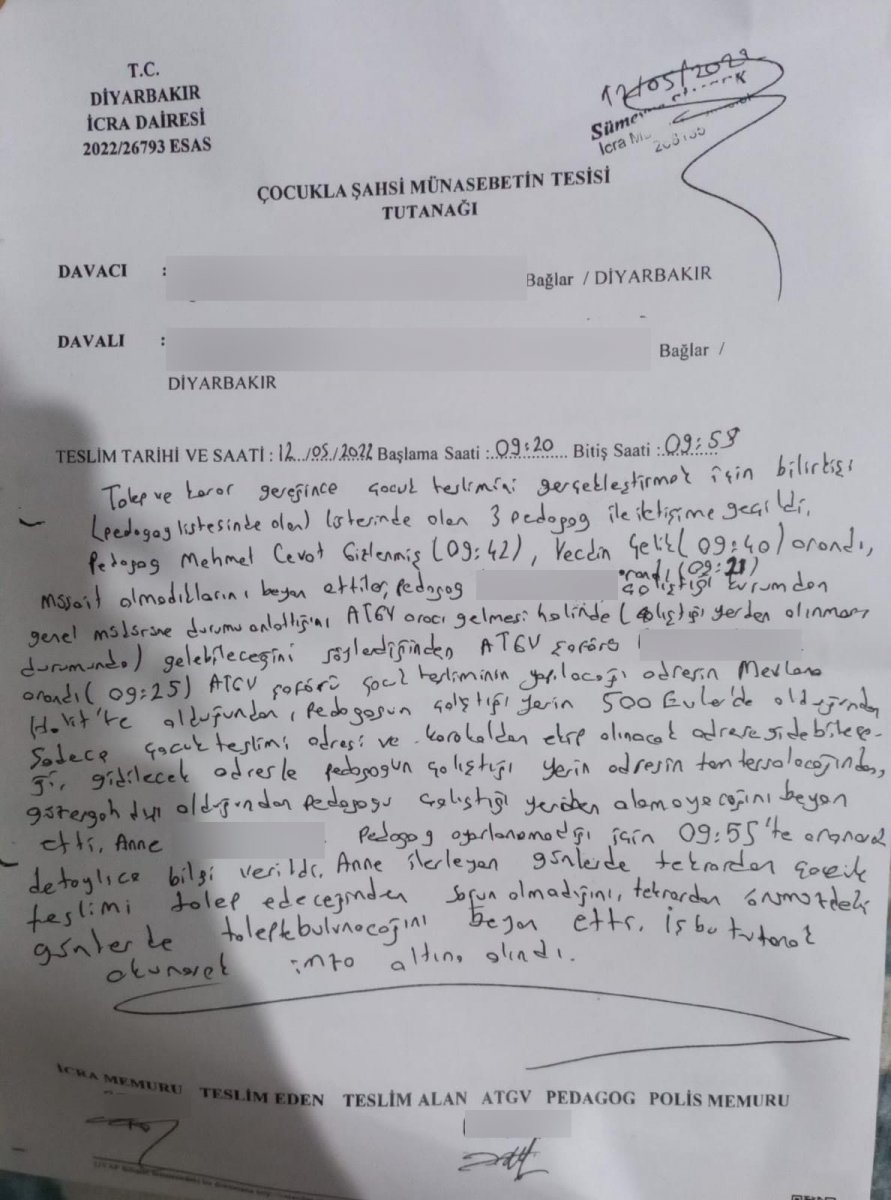 T.C.
DİYARBAKIR
İCRA DAİRESİ
2022/26793 ESAS
12/05/2022
Süme
İcra M
ÇOCUKLA ŞAHSİ MÜNASEBETİN TESİSİ
TUTANAĞI
DAVACI : Bağlar / DİYARBAKIR
DAVALI : Bağlar /
DİYARBAKIR
TESLİM TARİHİ VE SAATİ : 12../05/2022 Başlama Saati :..09:20.... Bitiş Saati :.09:58
Talep ve karar gereğince çocuk teslimini gerçekleştirmek için bilirkişi
(pedagog listesinde olan) listerinde olan 3 pedagog ile iletişime geçildi,
Pedagog Mehmet Cevat Gizlenmiş (09:42), Vecdin Çelik (09:40) arandı,
müsait olmadıklarını beyan ettiler, pedagog arandı (09:21) çalıştığı kurumdan
genel müdürüne durumu anlattığını ATGV aracı gelmesi halinde (çalıştığı yerden alınması
durumunda) gelebileceğini söylediğinden ATGV şoförü
arandı (09:25) ATGV şoförü çocuk tesliminin yapılacağı adresin Mevlana
Halit'te olduğundan, pedagogun çalıştığı yerin 500 Evler'de olduğundan
sadece çocuk teslimi adresi ve karakoldan ekip alınacak adrese gidebilece-
ği, gidilecek adresle pedagogun çalıştığı yerin adresin tam ters olacağından,
güzergah dışı olduğundan pedagogu çalıştığı yerden alamayacağını beyan
etti, Anne pedagog ayarlanamadığı için 09:55'te aranarak
detaylıca bilgi verildi, Anne ilerleyen günlerde tekrardan çocuk
teslimi talep edeceğinden sorun olmadığını, tekrardan önümüzdeki
günlerde talepte bulunacağını beyan etti. İşbu tutanak
okunarak imza altına alındı.
İCRA MEMURU TESLİM EDEN TESLİM ALAN ATGV PEDAGOG POLİS MEMURU